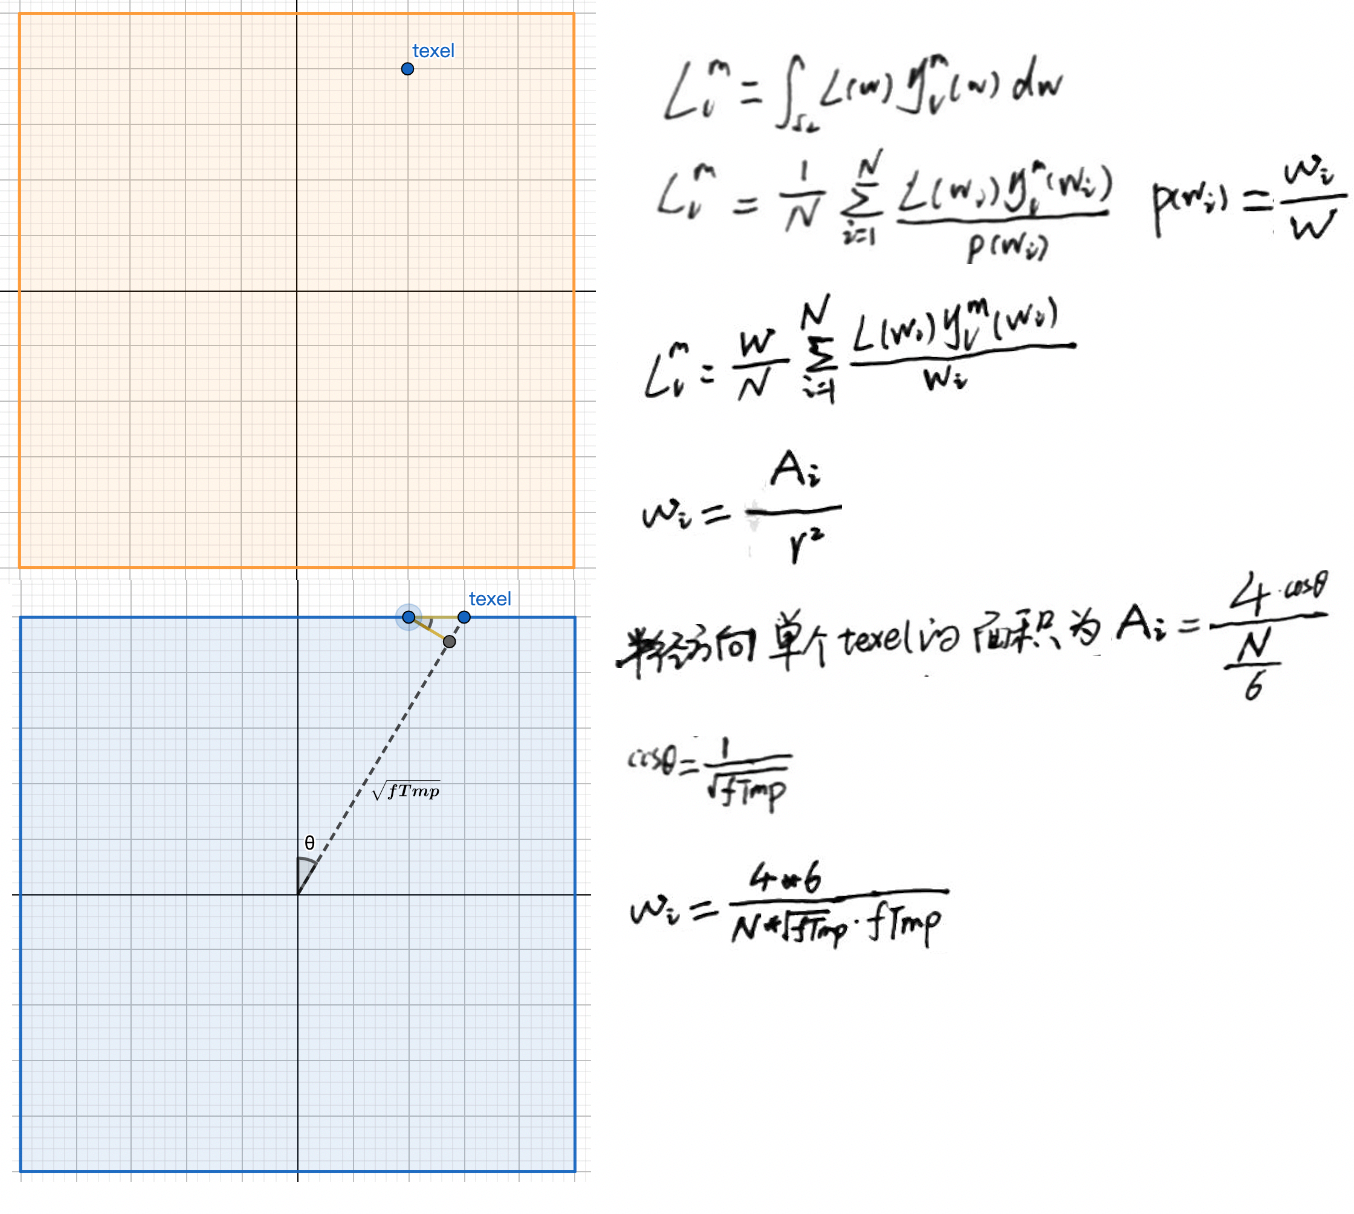 texel
texel
θ
√fTmp
L_l^m = ∫_Ω L(w) y_l^m(w) dw
L_l^m = 1/N Σ_{i=1}^N L(w_i) y_l^m(w_i) / p(w_i) p(w_i) = w_i / W
L_l^m = W/N Σ_{i=1}^N L(w_i) y_l^m(w_i) / w_i
w_i = A_i / r²
半径方向 单个texel的面积为 A_i = 4·cosθ / (N/6)
cosθ = 1/√fTmp
w_i = 4*6 / (N*√fTmp · fTmp)